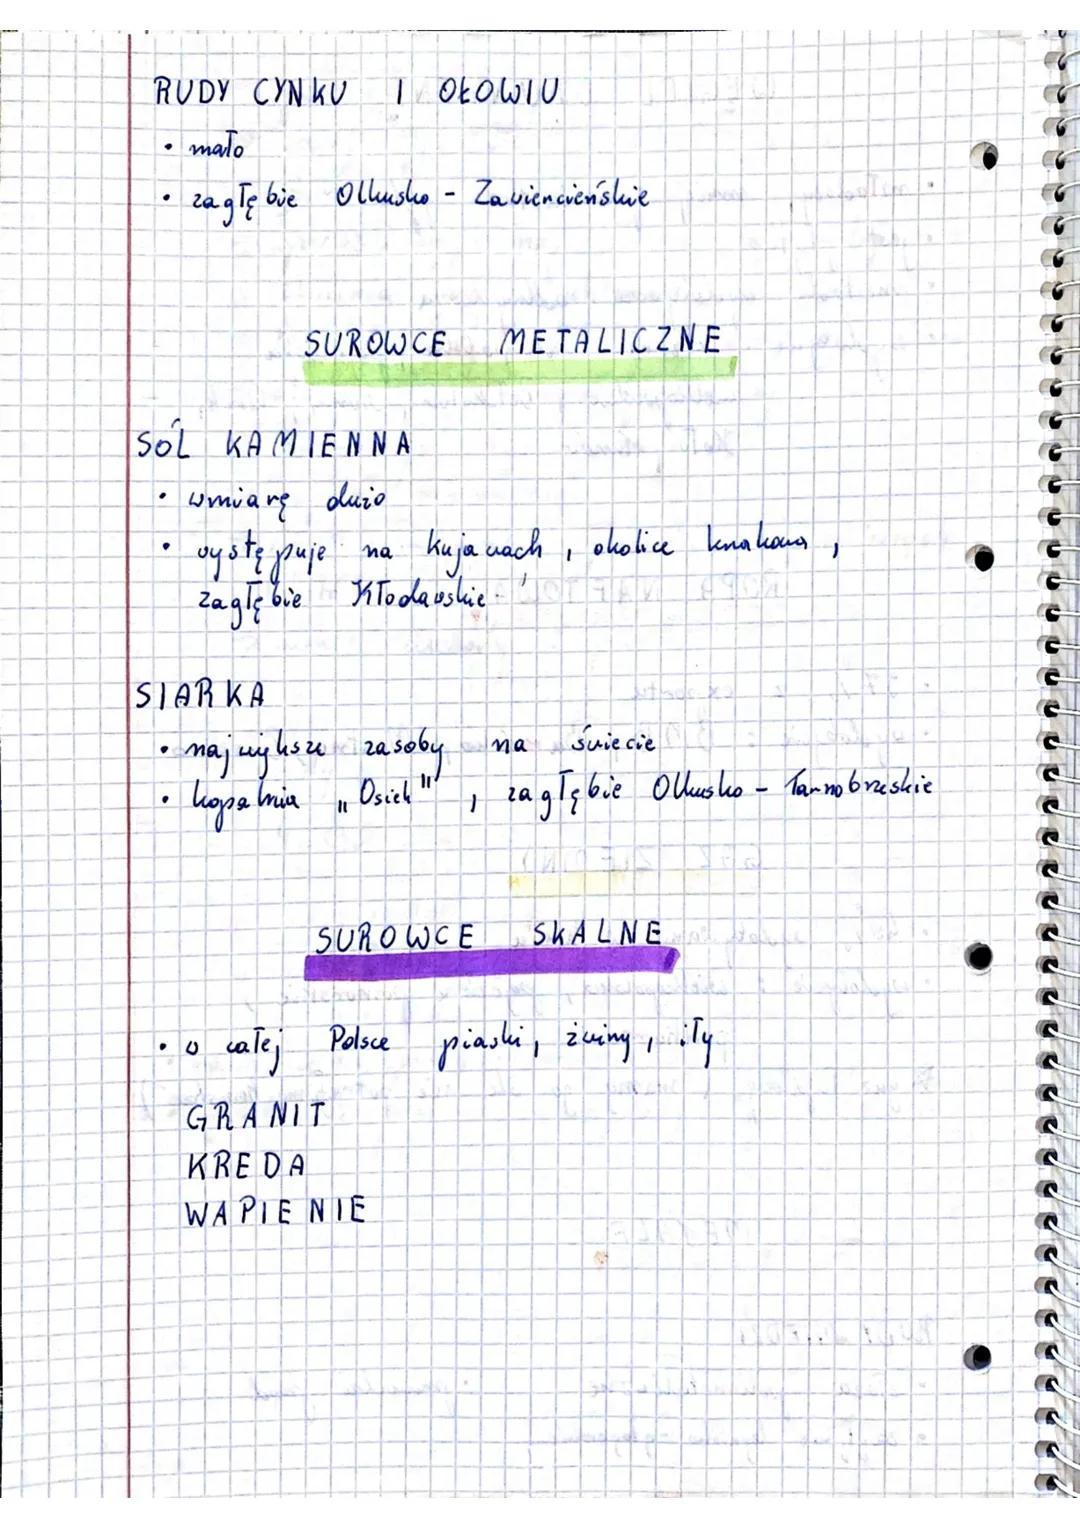 RUDY CYNKU I OŁOWIU
• mało
• zagłębie Olkusko - Zawiercieńskie
SUROWCE METALICZNE
SÓL KAMIENNA
• wmiarę dużo
• występuje na Kujawach, okolice krakowa,
zagłębie Kłodawskie
SIARKA
• największe zasoby na świecie
• kopalnia „Osiek", zagłębie Olkusko - Tarnobrzeskie
SUROWCE SKALNE
• w całej Polsce piaski, żwiry, iły
GRANIT
KREDA
WAPIENIE